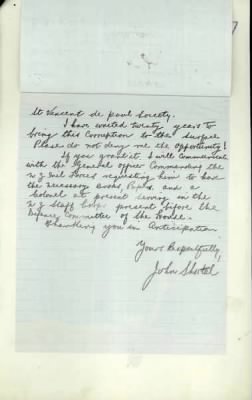 St Vincent de Paul Society.
I have waited twenty years to
bring this Corruption to the surface
Please do not deny me the opportunity!
If you grant it. I will communicate
with the General Officer Commanding the
N Z Mil Forces requesting him to have
the necessary Books, Papers, and a
Colonel at present serving in the
N Z Staff Corps present before the
Committee of the House.
Thanking you in Anticipation
Yours Respectfully,
John